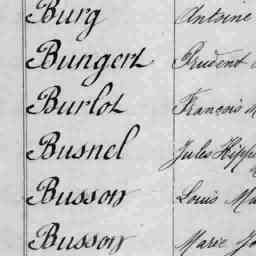 Burg Antoine
Bungert Prudent
Burlot François M
Busnel Jules Hippo
Busson Louis Ma
Busson Marie Jo